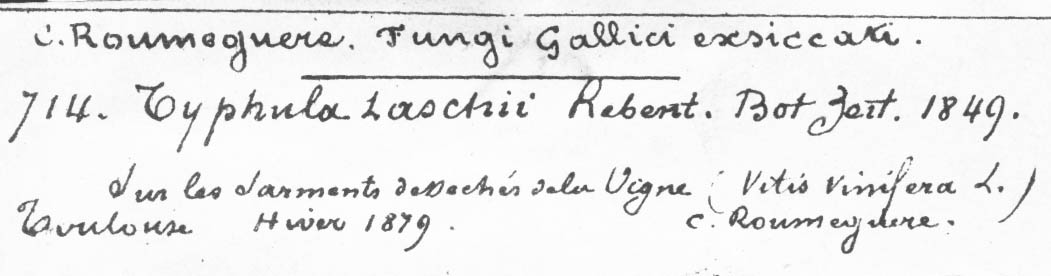 C. Roumeguere. Fungi Gallici exsiccati.
714. Typhula Laschii Rebent. Bot Zeit. 1849.
Sur les Sarments dessechés dela Vigne (Vitis vinifera L.)
Toulouse Hiver 1879. C. Roumeguere.